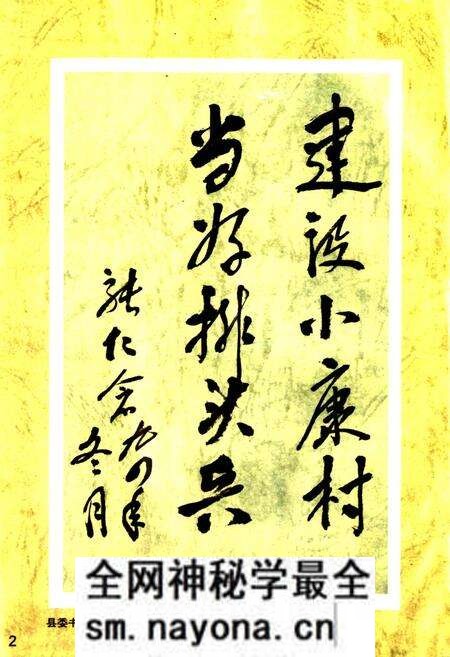 建设小康村
当好排头兵
仁
九四年
冬月
县委
全网神秘学最全
sm.nayona.cn
2